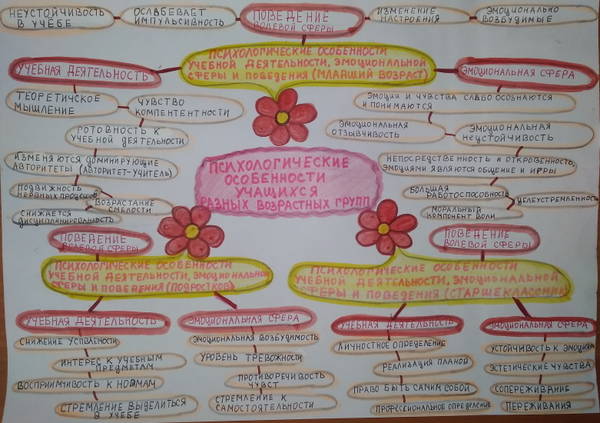 НЕУСТОЙЧИВОСТЬ
В УЧЁБЕ
ОСЛАБЕВАЕТ
ИМПУЛЬСИВНОСТЬ
ПОВЕДЕНИЕ
ВОЛЕВОЙ СФЕРЫ
ИЗМЕНЕНИЕ
НАСТРОЕНИЯ
ЭМОЦИОНАЛЬНО
ВОЗБУДИМЫЕ
ПСИХОЛОГИЧЕСКИЕ ОСОБЕННОСТИ
УЧЕБНОЙ ДЕЯТЕЛЬНОСТИ, ЭМОЦИОНАЛЬНОЙ
СФЕРЫ И ПОВЕДЕНИЯ (МЛАДШИЙ ВОЗРАСТ)
УЧЕБНАЯ ДЕЯТЕЛЬНОСТЬ
ТЕОРЕТИЧЕСКОЕ
МЫШЛЕНИЕ
ЧУВСТВО
КОМПЕТЕНТНОСТИ
ГОТОВНОСТЬ К
УЧЕБНОЙ ДЕЯТЕЛЬНОСТИ
ИЗМЕНЯЮТСЯ ДОМИНИРУЮЩИЕ
АВТОРИТЕТЫ (АВТОРИТЕТ-УЧИТЕЛЬ)
ПОДВИЖНОСТЬ
НЕРВНЫХ ПРОЦЕССОВ
ВОЗРАСТАНИЕ
СМЕЛОСТИ
СНИЖАЕТСЯ
ДИСЦИПЛИНИРОВАННОСТЬ
ЭМОЦИОНАЛЬНАЯ СФЕРА
ЭМОЦИИ И ЧУВСТВА СЛАБО ОСОЗНАЮТСЯ
И ПОНИМАЮТСЯ
ЭМОЦИОНАЛЬНАЯ
ОТЗЫВЧИВОСТЬ
ЭМОЦИОНАЛЬНАЯ
НЕУСТОЙЧИВОСТЬ
НЕПОСРЕДСТВЕННОСТЬ И ОТКРОВЕННО,
ЭМОЦИЯМИ ЯВЛЯЮТСЯ ОБЩЕНИЕ И ИГРЫ
БОЛЬШАЯ
РАБОТОСПОСОБНОСТЬ
ЦЕЛЕУСТРЕМЛЕННОСТЬ
МОРАЛЬНЫЙ
КОМПОНЕНТ ВОЛИ
ПСИХОЛОГИЧЕСКИЕ
ОСОБЕННОСТИ
УЧАЩИХСЯ
РАЗНЫХ ВОЗРАСТНЫХ ГРУПП
ПОВЕДЕНИЕ
ВОЛЕВОЙ СФЕРЫ
ПСИХОЛОГИЧЕСКИЕ ОСОБЕННОСТИ
УЧЕБНОЙ ДЕЯТЕЛЬНОСТИ, ЭМОЦИОНАЛЬНОЙ
СФЕРЫ И ПОВЕДЕНИЯ (ПОДРОСТКОВ)
УЧЕБНАЯ ДЕЯТЕЛЬНОСТЬ
СНИЖЕНИЕ УСПЕВАЕМОСТИ
ИНТЕРЕС К УЧЕБНЫМ
ПРЕДМЕТАМ
ВОСПРИИМЧИВОСТЬ К НОРМАМ
СТРЕМЛЕНИЕ ВЫДЕЛИТЬСЯ
В УЧЕБЕ
ЭМОЦИОНАЛЬНАЯ СФЕРА
ЭМОЦИОНАЛЬНАЯ ВОЗБУДИМОСТЬ
УРОВЕНЬ ТРЕВОЖНОСТИ
ПРОТИВОРЕЧИВОСТЬ
ЧУВСТВ
СТРЕМЛЕНИЕ К
САМОСТОЯТЕЛЬНОСТИ
ПОВЕДЕНИЕ
ВОЛЕВОЙ СФЕРЫ
ПСИХОЛОГИЧЕСКИЕ ОСОБЕННОСТИ
УЧЕБНОЙ ДЕЯТЕЛЬНОСТИ, ЭМОЦИОНАЛЬНОЙ
СФЕРЫ И ПОВЕДЕНИЯ (СТАРШЕКЛАССНИК)
УЧЕБНАЯ ДЕЯТЕЛЬНОСТЬ
ЛИЧНОСТНОЕ ОПРЕДЕЛЕНИЕ
РЕАЛИЗАЦИЯ ПЛАНОВ
ПРАВО БЫТЬ САМИМ СОБОЙ
ПРОФЕССИОНАЛЬНОЕ ОПРЕДЕЛЕНИЕ
ЭМОЦИОНАЛЬНАЯ СФЕРА
УСТОЙЧИВОСТЬ К ЭМОЦИЯМ
ЭСТЕТИЧЕСКИЕ ЧУВСТВА
СОПЕРЕЖИВАНИЕ
ПЕРЕЖИВАНИЯ